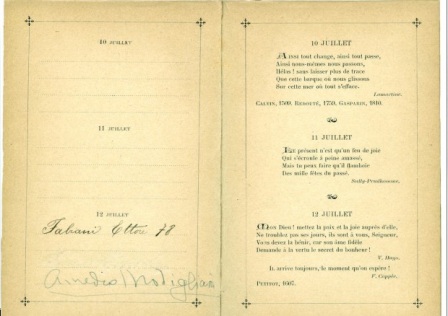 10 JUILLET
11 JUILLET
12 JUILLET
Fabani Ettore 78
Amedeo Modigliani
10 JUILLET
Ainsi tout change, ainsi tout passe,
Ainsi nous-mêmes nous passons,
Hélas ! sans laisser plus de trace
Que cette barque où nous glissons
Sur cette mer où tout s'efface.
Lamartine.
CALVIN, 1509. 1750. GASPARIN, 1810.
11 JUILLET
Le présent n'est qu'un feu de joie
Qui s'écroule à peine amassé,
Mais tu peux faire qu'il flamboie
Des mille fêtes du passé.
Sully-Prudhomme.
12 JUILLET
Mon Dieu ! mettez la paix et la joie auprès d'elle,
Ne troublez pas ses jours, ils sont à vous, Seigneur,
Vous devez la bénir, car son âme fidèle
Demande à la vertu le secret du bonheur !
V. Hugo.
Il arrive toujours, le moment qu'on espère !
F. Coppée.
1607.